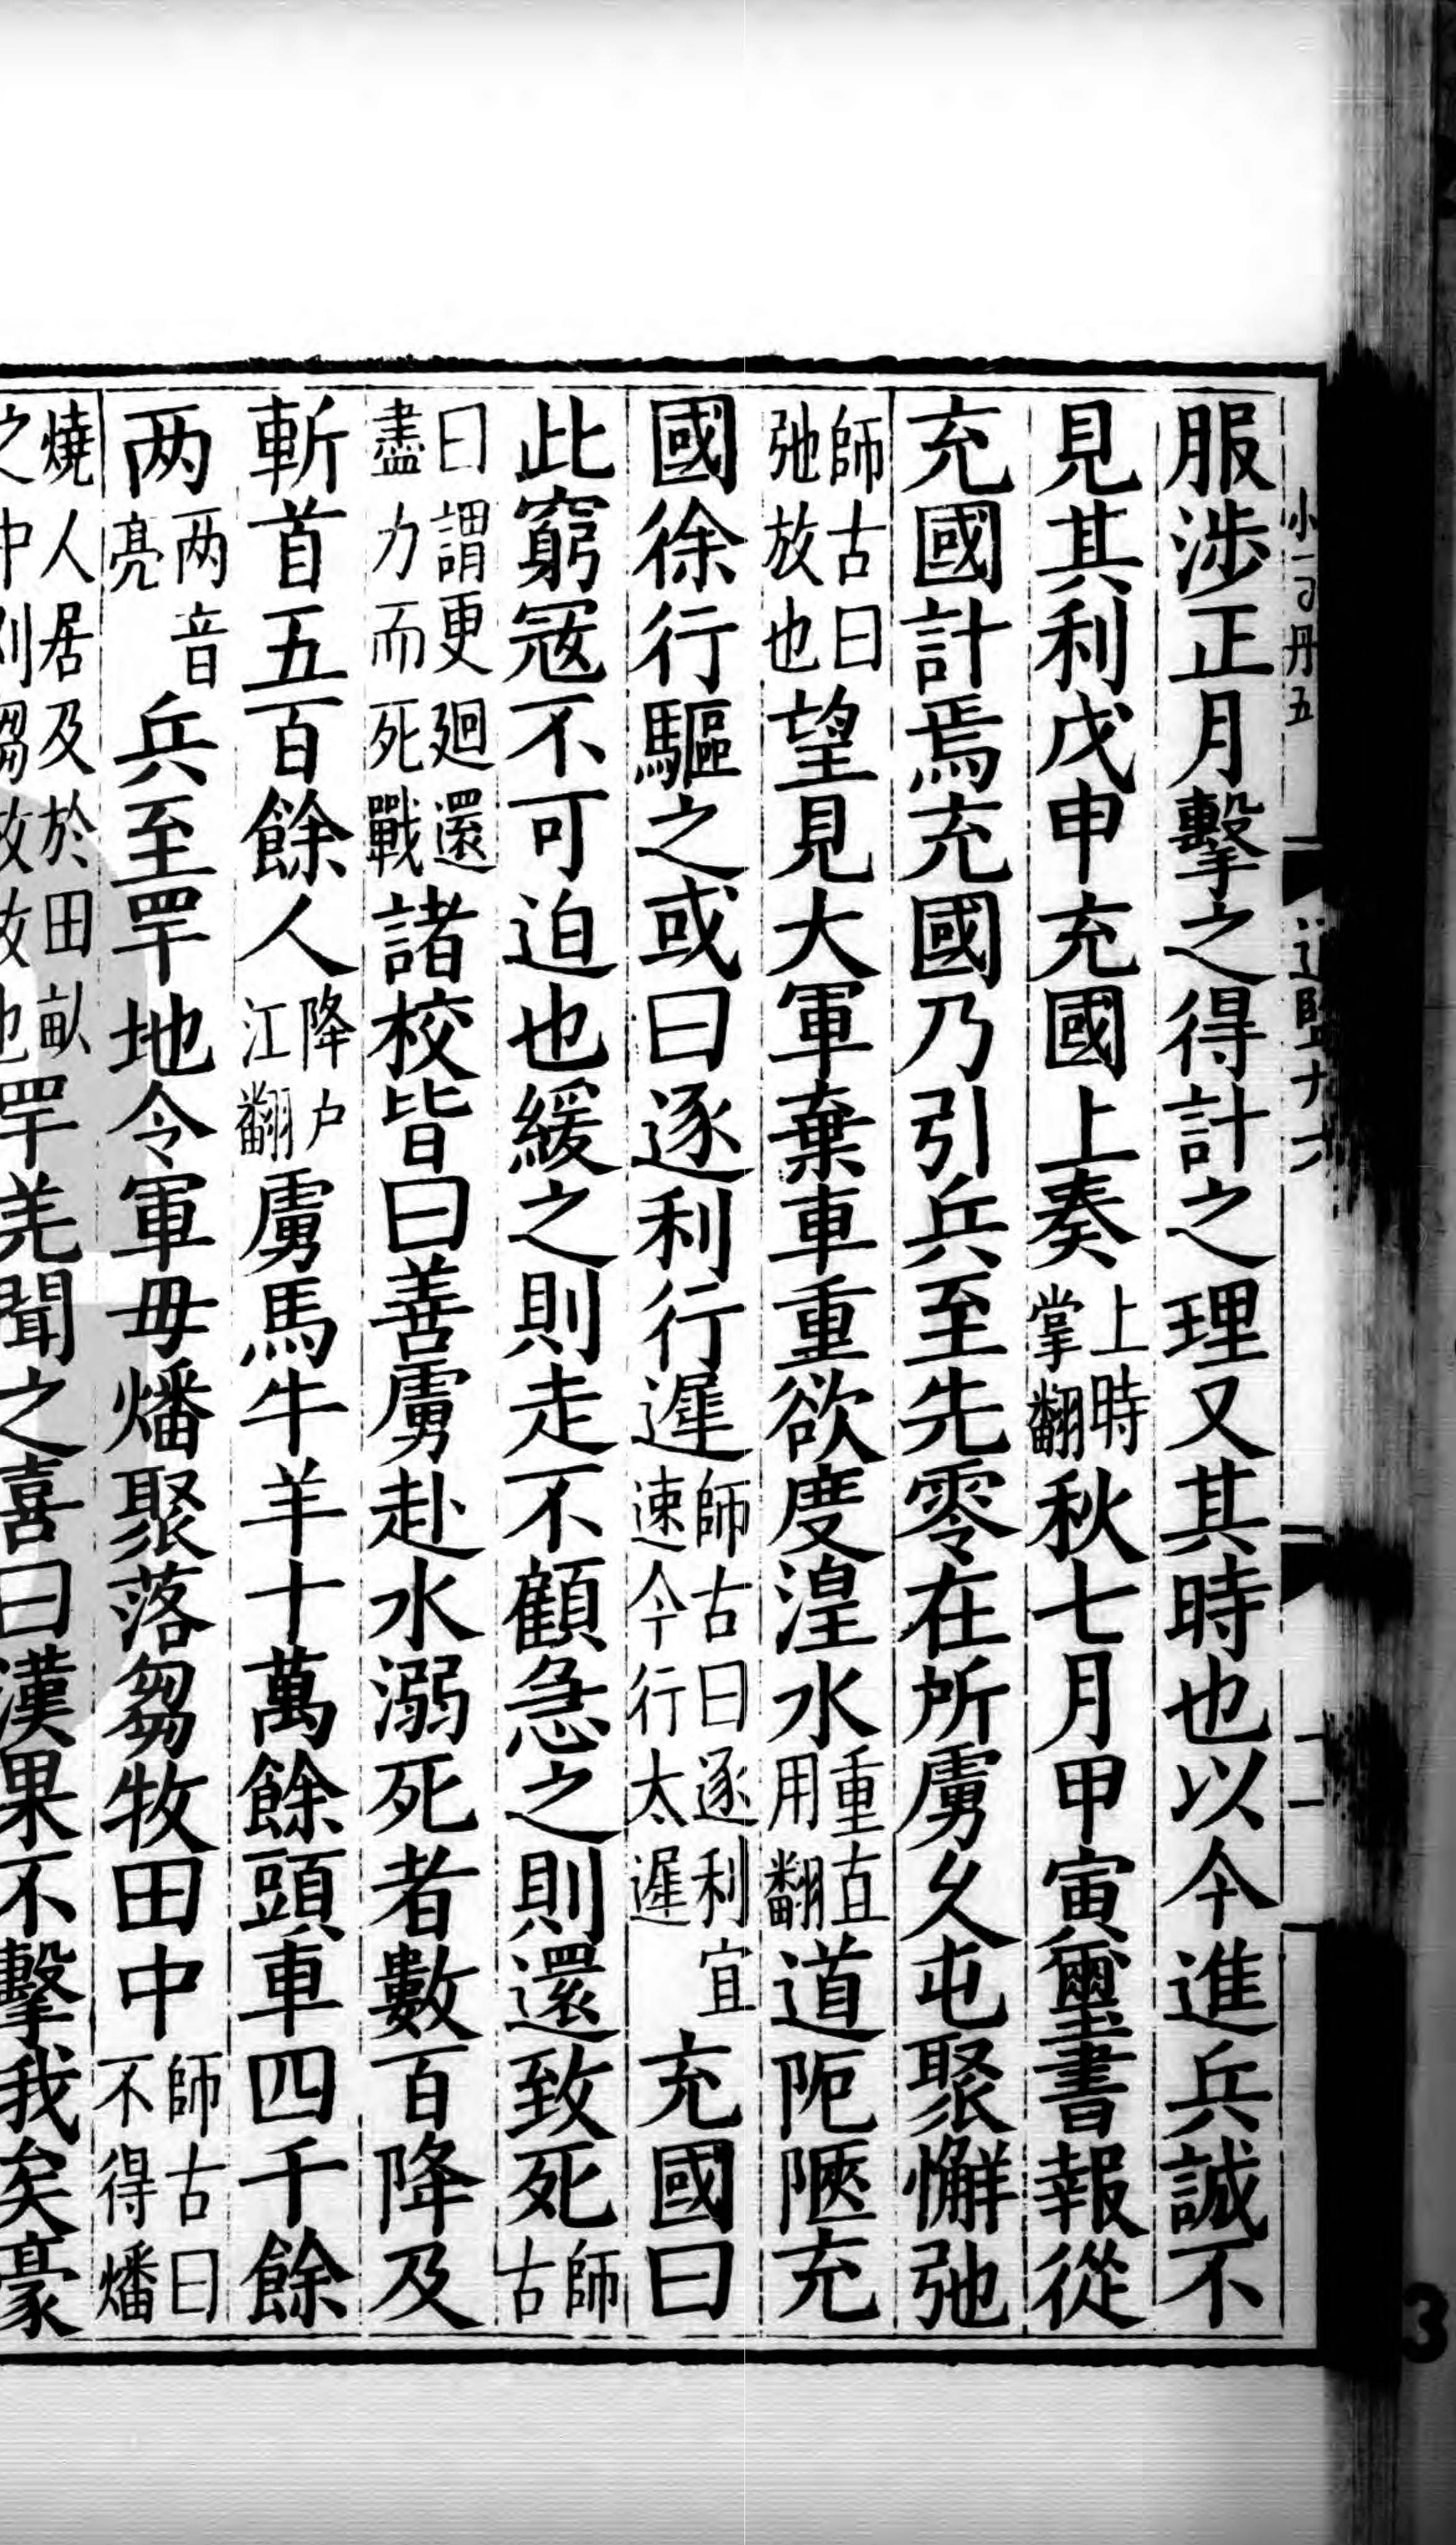 服涉正月擊之得計之理又其時也以今進兵誠不
見其利戊申充國上奏上時掌翻秋七月甲寅璽書報從
充國計焉充國乃引兵至先零在所虜久屯聚懈弛
師古曰弛放也望見大軍棄車重欲度湟水重直用翻道阨陿充
國徐行驅之或曰逐利行遲師古曰逐利宜速今行太遲充國曰
此窮寇不可迫也緩之則走不顧急之則還致死師古
曰謂更廻還盡力而死戰諸校皆曰善虜赴水溺死者數百降及
斬首五百餘人降户江翻虜馬牛羊十萬餘頭車四千餘
两两音亮兵至䍐地令軍毋燔聚落芻牧田中師古曰不得燔
燒人居及於田畝之中刈芻放牧也䍐羌聞之喜曰漢果不擊我矣豪